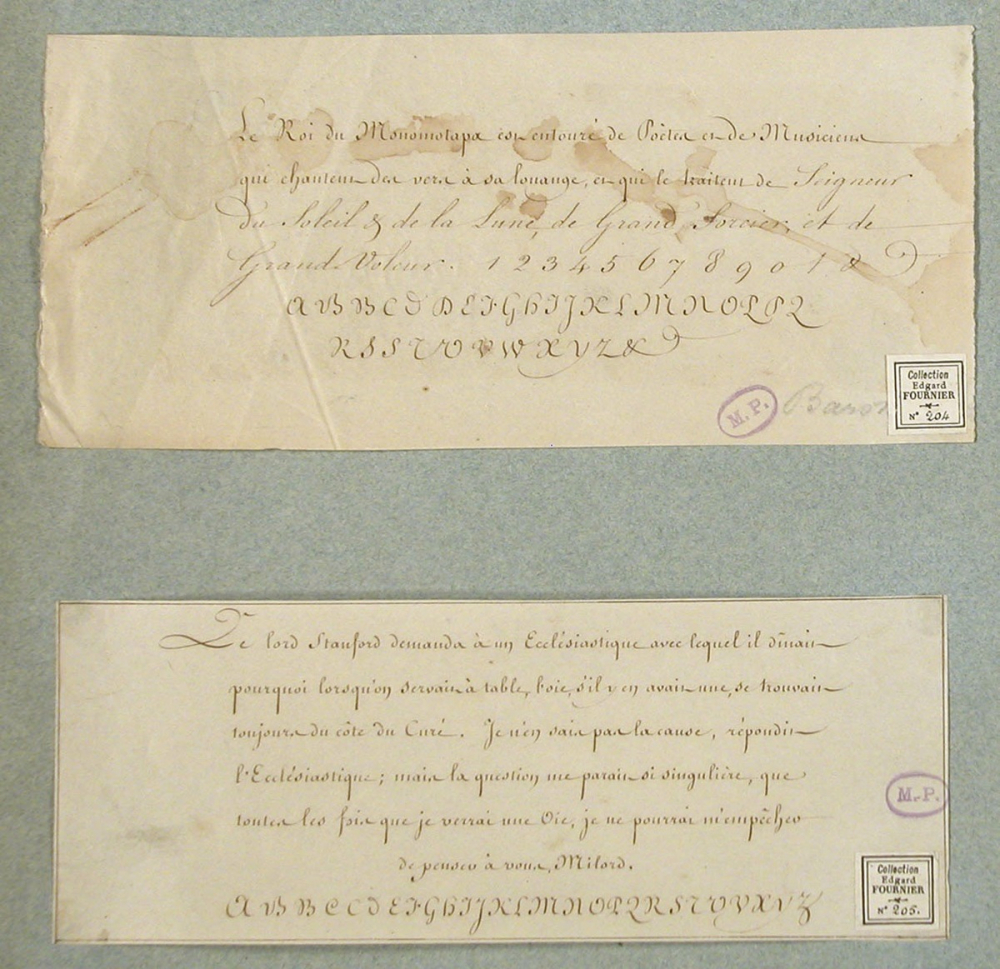 Le Roi du Monomotapa est entouré de Poètes et de Musiciens
qui chantent des vers à sa louange, et qui le traitent de Seigneur
du Soleil & de la Lune, de Grand Sorcier, et de
Grand Voleur. 1 2 3 4 5 6 7 8 9 0 1 &
A B B C D D E F G H I J K L M N O L P Q
R S S T V V W X Y Z &
M. P.
Collection
Edgard
FOURNIER
N° 204
Le lord Stanford demanda à un Ecclésiastique avec lequel il dînait
pourquoi lorsqu'on servait à table, l'oie, s'il y en avait une, se trouvait
toujours du côte du Curé. Je n'en sais pas la cause, répondit
l'Ecclésiastique; mais la question me parait si singulière, que
toutes les fois que je verrai une Oie, je ne pourrai m'empêcher
de penser à vous, Milord.
A B B C C D E F G H I J K L M N O P Q R S T V V X Y Z
M. P.
Collection
Edgard
FOURNIER
N° 205.